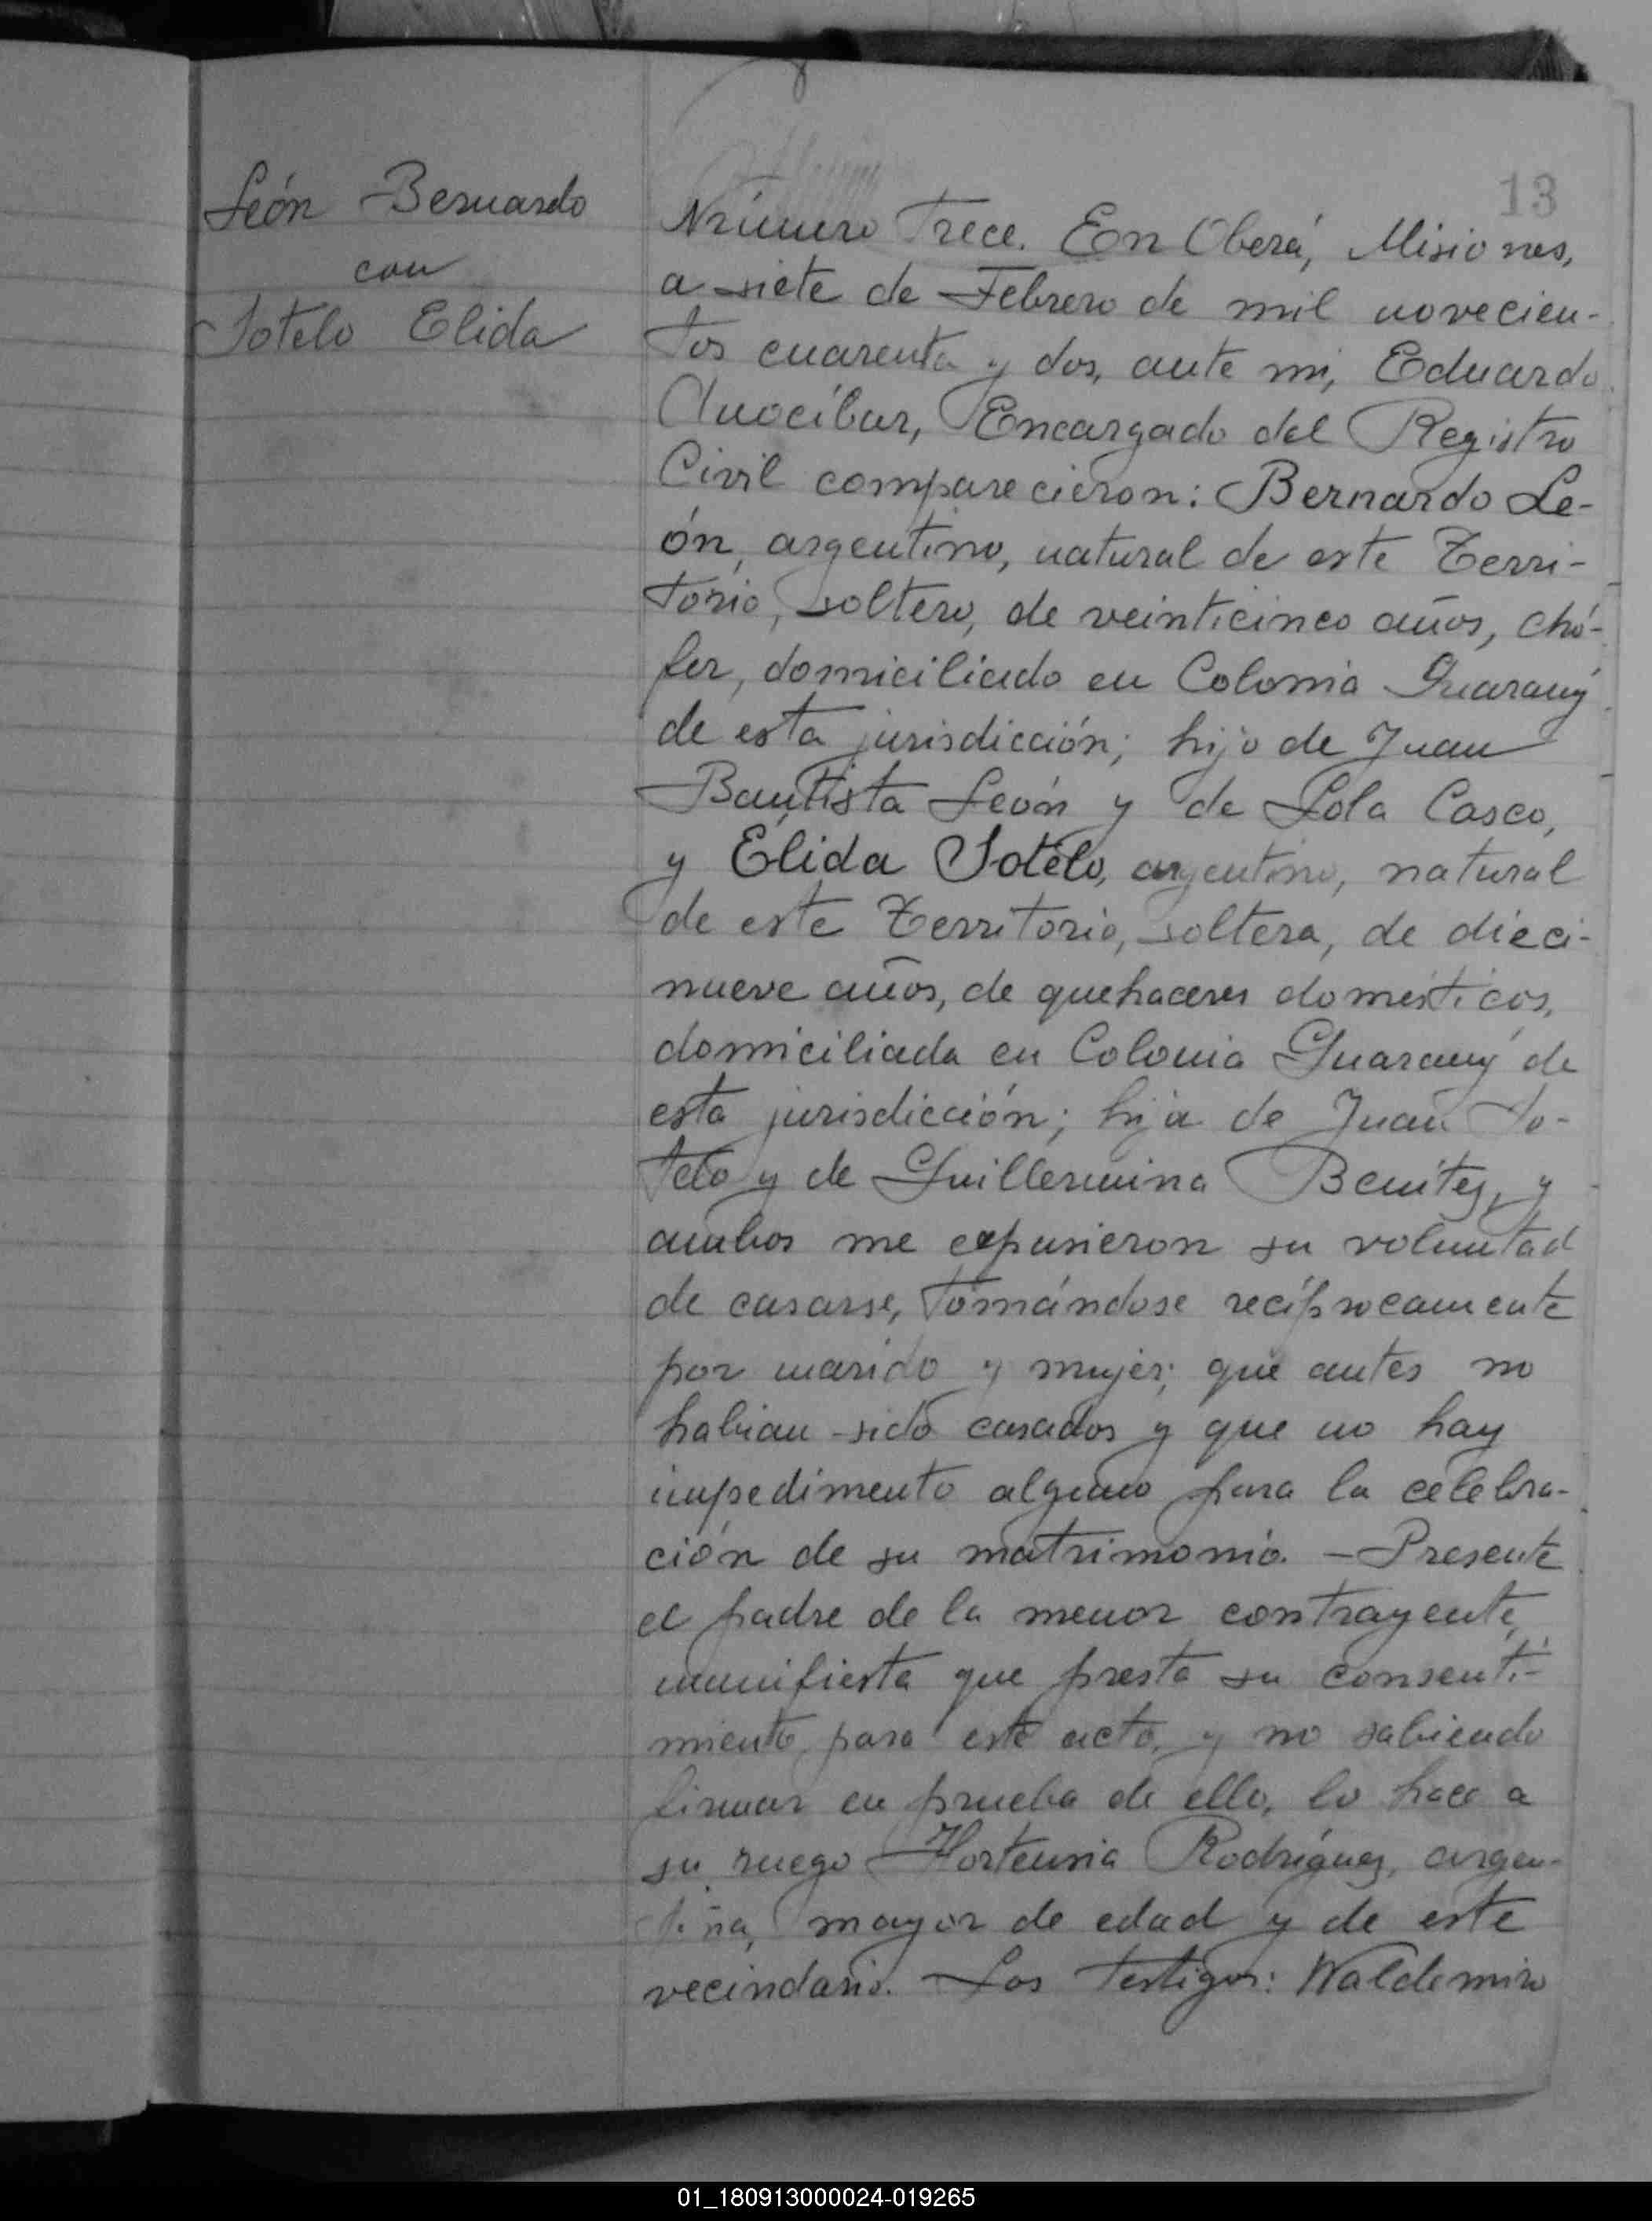 León Bernardo
con
Sotelo Elida
13
Número Trece. En Oberá, Misiones,
a siete de Febrero de mil novecien-
tos cuarenta y dos, ante mi, Eduardo
Anocíbar, Encargado del Registro
Civil comparecieron: Bernardo Le-
ón, argentino, natural de este Terri-
torio, soltero, de veinticinco años, chó-
fer, domiciliado en Colonia Guarany
de esta jurisdicción; hijo de Juan
Bautista León y de Lola Casco,
y Élida Sotelo, argentino, natural
de este Territorio, soltera, de dieci-
nueve años, de quehaceres domésticos,
domiciliada en Colonia Guarany de
esta jurisdicción; hija de Juan So-
telo y de Guillermina Benítez, y
ambos me expusieron su voluntad
de casarse, tomándose recíprocamente
por marido y mujer; que antes no
habian sido casados y que no hay
impedimento alguno para la celebra-
ción de su matrimonio. - Presente
el padre de la menor contrayente,
manifiesta que presta su consenti-
miento para este acto, y no sabiendo
firmar en prueba de ello, lo hace a
su ruego Hortensia Rodríguez, argen-
tina, mayor de edad y de este
vecindario. Los testigos: Waldemiro
01_180913000024-019265